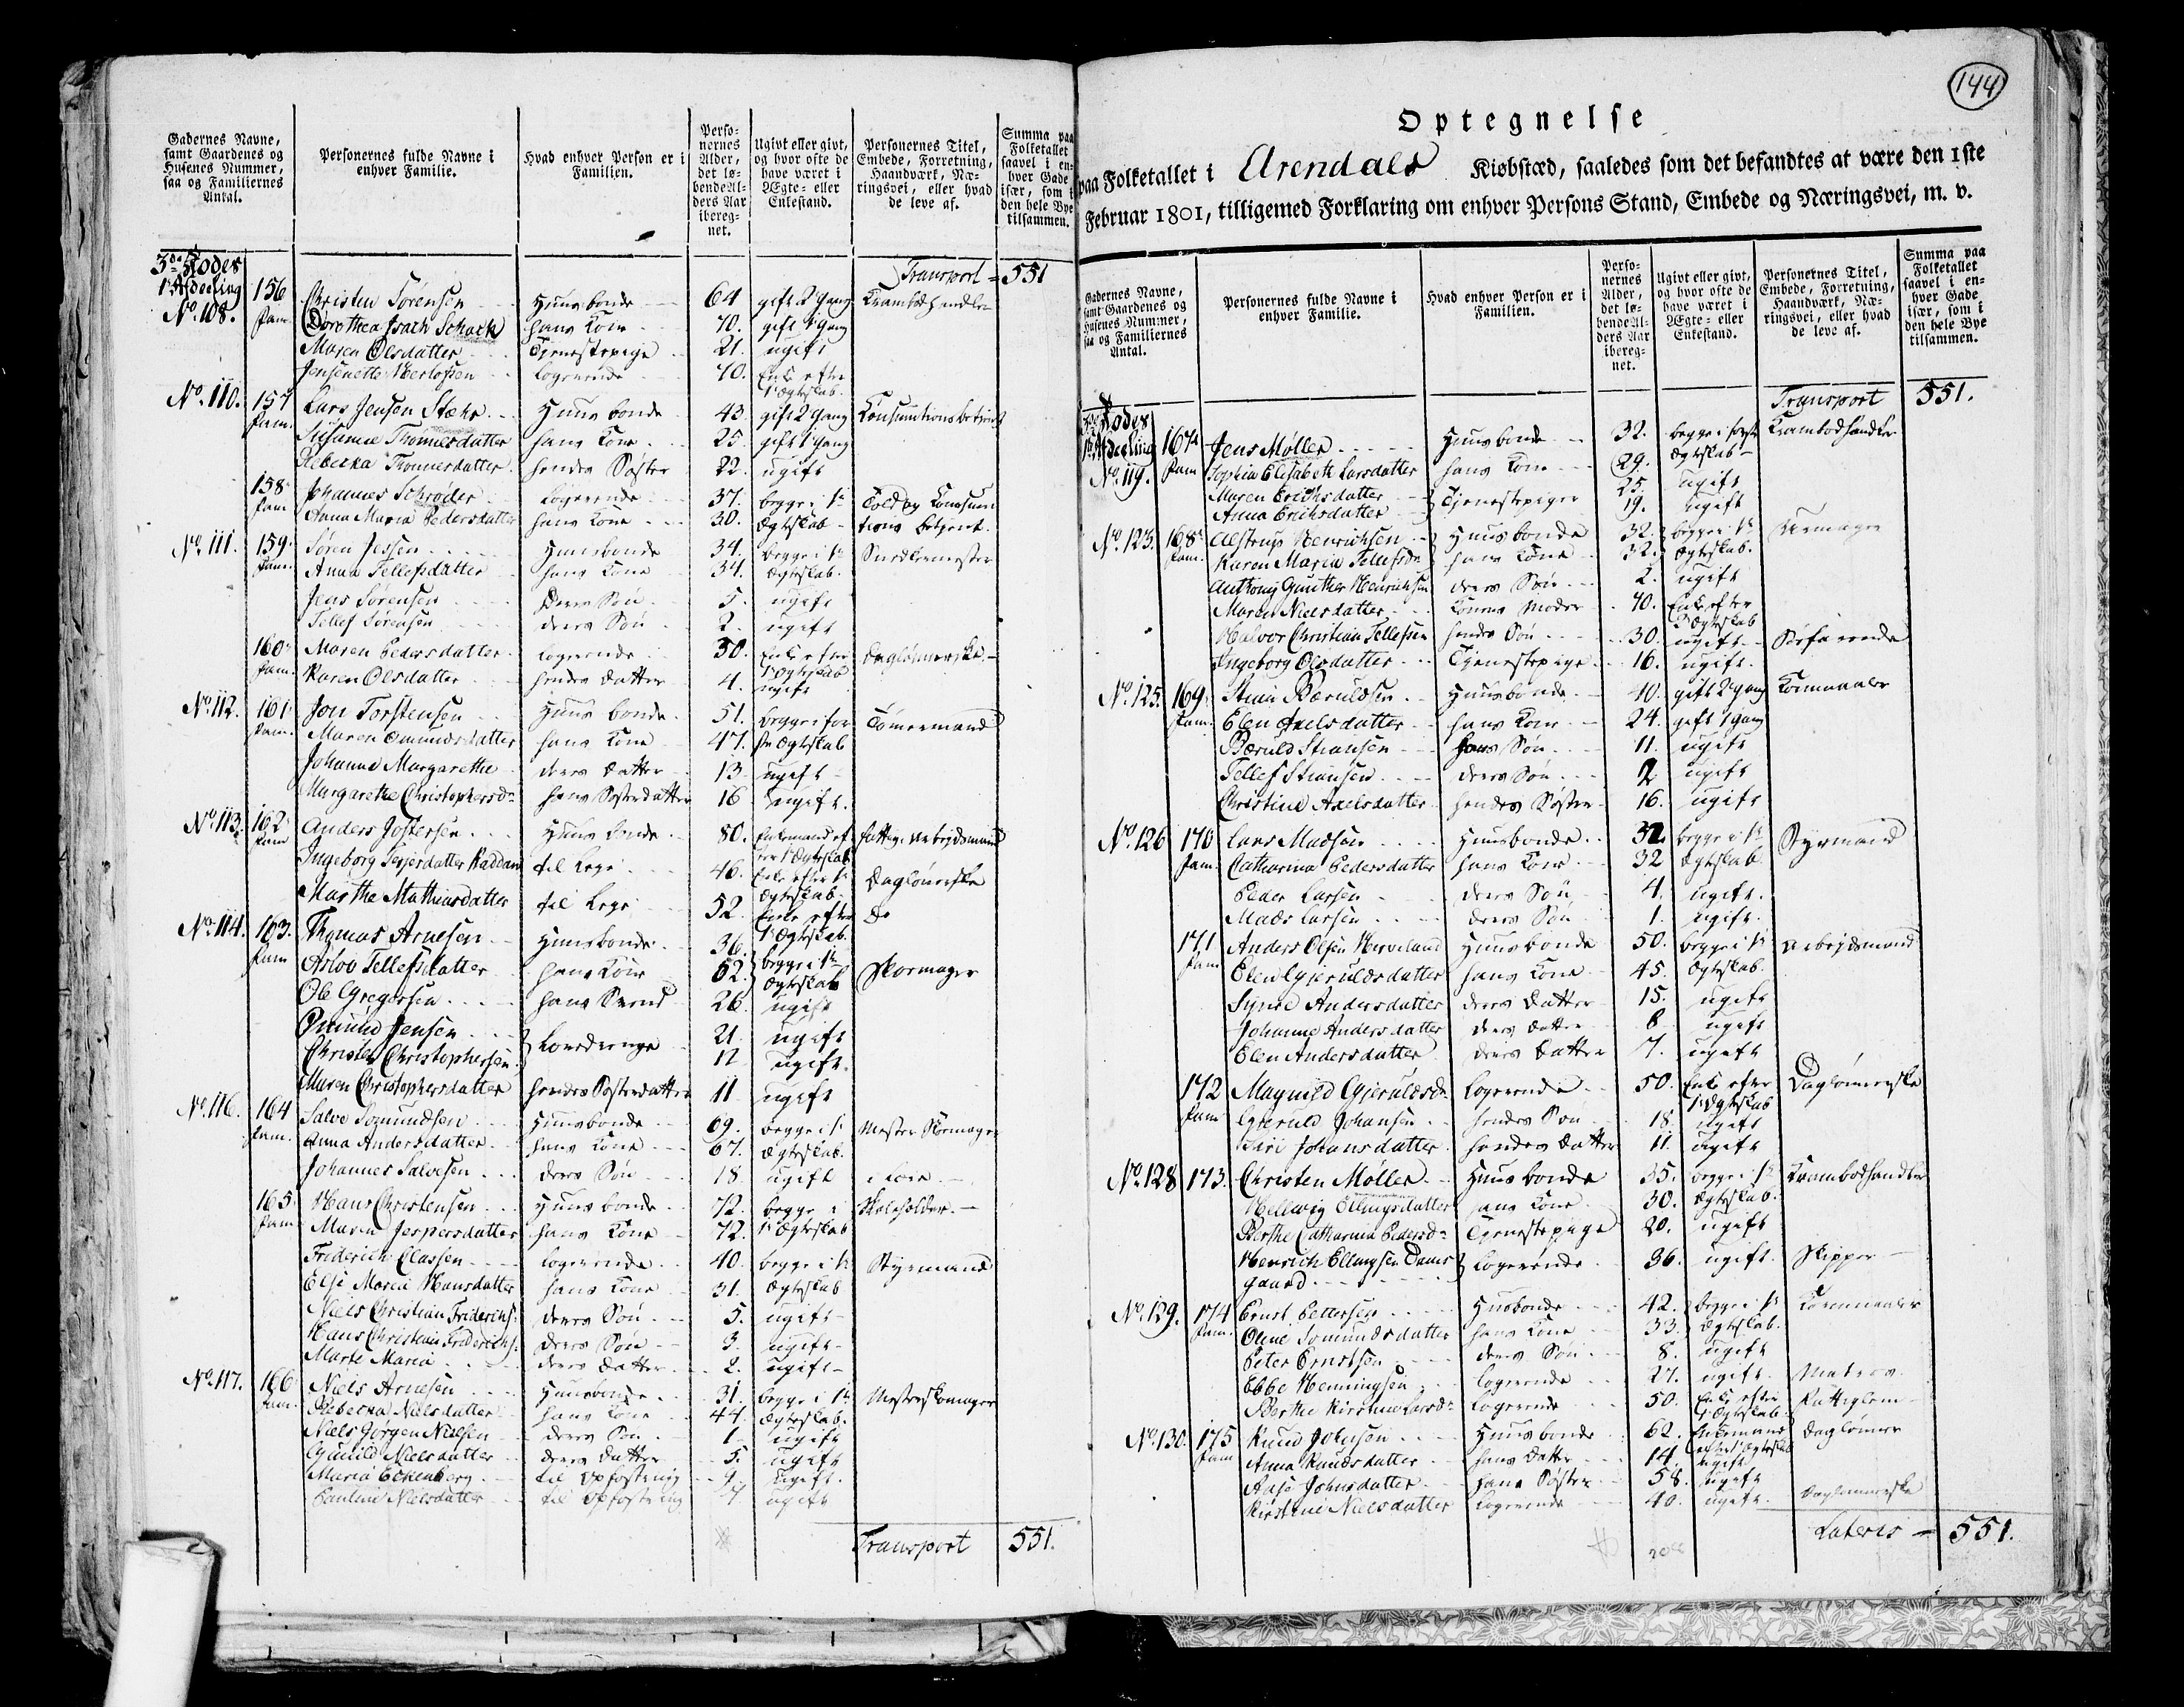 Gadernes Navne, samt Gaardenes og Husenes Nummer, saa og Familiernes Antal.
Personernes fulde Navne i enhver Familie.
Hvad enhver Person er i Familien.
Personernes Alder, det løbende Alders Aar iberegnet.
Ugivt eller givt, og hvor ofte de have været i Ægte- eller Enkestand.
Personernes Titel, Embede, Forretning, Haandværk, Næringsvei, eller hvad de leve af.
Summa paa Folketallet saavel i enhver Gade især, som i den hele Bye tilsammen.
3de Rodes 1ste Afdeeling
Transport = 551
No. 108. 156 Fam. Christen Sørensen Huusbonde 64 gift 2 Gang Krambodhandler
Dorothea Isach Schack hans Kone 70. gift 1 Gang
Maren Olsdatter Tjenestepige 21. ugift
Jensenette Herlofsen logerende 70. Enke efter 1t Ægteskab
No. 110. 157 Fam. Lars Jensen Stæhr Huusbonde 43. gift 2 Gang Consumtionsbetjent
Susanne Thommesdatter hans Kone 25. gift 1 Gang
Rebecka Thommesdatter hendes Søster 22. ugift
158 Fam. Johannes Schrøder logerende 37. begge i 1t Told og Consum
Anna Maria Pedersdatter hans Kone 30. Ægteskab tions betjent
No. 111. 159. Fam. Søren Jessen Huusbonde 34. begge i 1t Snedkermester
Anna Tellefsdatter hans Kone 34. Ægteskab.
Jens Sørensen deres Søn 5. ugift
Tellef Sørensen deres Søn 2. ugift
160. Fam. Maren Pedersdatter logerende 30. Enke efter 1t Ægteskab Daglønnerske
Karen Olsdatter hendes Datter 4. ugift
No. 112. 161. Fam. Jon Torstensen Huusbonde 51. begge i før Tømermand
Maren Omundsdatter hans Kone 47. ste Ægteskab
Johanne Margarethe deres Datter 13 ugift
Margarethe Christophersdr hans Søsterdatter 16 ugift.
No. 113. 162. Fam. Anders Jostersen Huusbonde 80. Enkemand ef ter 1t Ægteskab fattig Arbejdsmand
Ingeborg Terjersdatter Raddam til Leye 46. Enke efter 1t Ægteskab Daglønerske
Marthe Mathiasdatter til Leye 52. Enke efter 1t Ægteskab Do
No. 114. 163. Fam Thomas Arnesen Huusbonde 36. begge i 1t Skomager
Aslov Tellefsdatter hans Kone 52. Ægteskab
Ole Gregorsen hans Svend 26 ugift
Omund Jensen Læredrenge 21 ugift
Christen Christophersen 17 ugift.
Maren Christophersdatter hendes Søsterdatter 11 ugift
No. 116. 164 Fam. Salve Somundsen Huusbonde 69. begge i 1t Mester Skomager
Anna Andersdatter hans Kone 67. Ægteskab.
Johannes Salvesen deres Søn 18 ugift
165. Fam Hans Christensen Huusbonde 72. begge i Skoleholder
Maren Jespersdatter hans Kone 72. 1t Ægteskab
Friderich Classen logerende 40. begge i 1t Styrmand
Else Maria Hansdatter hans Kone 31. Ægteskab
Niels Christian Friderichs. deres Søn 5. ugift
Hans Christian Friderichs. deres Søn 3. ugift
Marte Maria deres Datter 2. ugift
No. 117. 166 Fam. Niels Arnesen Huusbonde 31. begge i 1t Mesterskomager
Rebecka Nielsdatter hans Kone 44. Ægteskab.
Niels Jørgen Nielsen deres Søn 1 ugift
Gunild Nielsdatter deres Datter 5. ugift
Maria Eckenberg til Opfostring 9. ugift.
Pauline Nielsdatter til Opfostring 7 ugift
Transport 551.
144
Optegnelse
paa Folketallet i Arendals Kiøbstæd, saaledes som det befandtes at være den 1ste
Februar 1801, tilligemed Forklaring om enhver Persons Stand, Embede og Næringsvei, m. v.
Gadernes Navne, samt Gaardenes og Husenes Nummer, saa og Familiernes Antal.
Personernes fulde Navne i enhver Familie.
Hvad enhver Person er i Familien.
Personernes Alder, det løbende Alders Aar iberegnet.
Ugivt eller givt, og hvor ofte de have været i Ægte- eller Enkestand.
Personernes Titel, Embede, Forretning, Haandværk, Næringsvei, eller hvad de leve af.
Summa paa Folketallet saavel i enhver Gade især, som i den hele Bye tilsammen.
Transport 551.
3de Rodes 1ste Afdeeling
No. 119. 167 Fam Jens Møller Huusbonde 32. begge i første Krambodhandler
Sophia Elisabeth Larsdatter hans Kone 29. Ægteskab
Maren Erichsdatter Tjenestepiger 25. ugift
Anna Erichsdatter 19. ugift
No. 123. 168 Fam. Aestrup Henrichsen Huusbonde 32. begge i 1t Uhrmager
Karen Maria Tellefsdr hans Kone 32. Ægteskab.
Anthony Gunther Henrichsen deres Søn 2. ugift
Maren Nielsdatter Konens Moder 70. Enke efter Ægteskab
Halvor Christian Tellefsen hendes Søn 30. ugift Søefarende
Ingeborg Olsdatter Tjenestepige 16. ugift.
No. 125. 169. Fam. Stian Bæruldsen Huusbonde 40. gift 2 Gang Kornmaaler
Elen Axelsdatter hans Kone 24. gift 1 Gang
Bæruld Stiansen hans Søn 11. ugift
Tellef Stiansen deres Søn 2 ugift
Christine Axelsdatter hendes Søster 16. ugift
No. 126 170 Fam. Lars Madsen Huusbonde 32. begge i 1t Styrmand
Catharina Pedersdatter hans Kone 32 Ægteskab.
Peder Larsen deres Søn 4. ugift.
Mads Larsen deres Søn 1. ugift.
171 Fam Anders Olsen Herveland Huusbonde 50. begge i 1t Arbejdsmand
Elen Gjeruldsdatter hans Kone 45. Ægteskab.
Synve Andersdatter deres Datter 15. ugift
Johanne Andersdatter deres Datter 8 ugift
Elen Andersdatter deres Datter 7. ugift
172 Fam Magnild Gjeruldsdr logerende 50. Enke efter 1t Ægteskab Daglønnerske
Gjeruld Johansen hendes Søn 18. ugift
Siri Johansdatter hendes Datter 11. ugift
No. 128 173. Christen Møller Huusbonde 35. begge i 1t Krambodhandler
Hellevig Ellingsdatter hans Kone 30. Ægteskab.
Berthe Catharina Pedersdr Tjenestepige 20. ugift
Henrich Ellingsen Dams
gaard logerende 36. ugift. Skipper
No. 129. 174 Fam. Ernst Pettersen Husbonde 42. begge i 1t Kornmaaler
Oline Somundsdatter hans Kone 33. Ægteskab.
Peter Ernstsen deres Søn 8. ugift
Ebbe Henningsen logerende 27. ugift. Matros
Berthe Kirstine Larsdr logerende 50. Enke efter 1t Ægteskab Fattiglem
No. 130. 175 Fam Knud Johnsen Huusbonde 62. Enkemand efter 1t Ægteskab Daglønner
Anna Knudsdatter hans Datter 14. ugift
Aase Johnsdatter hans Søster 58. ugift
Kirstine Nielsdatter logerende 40. ugift. Daglønnerske
Lateris = 551.